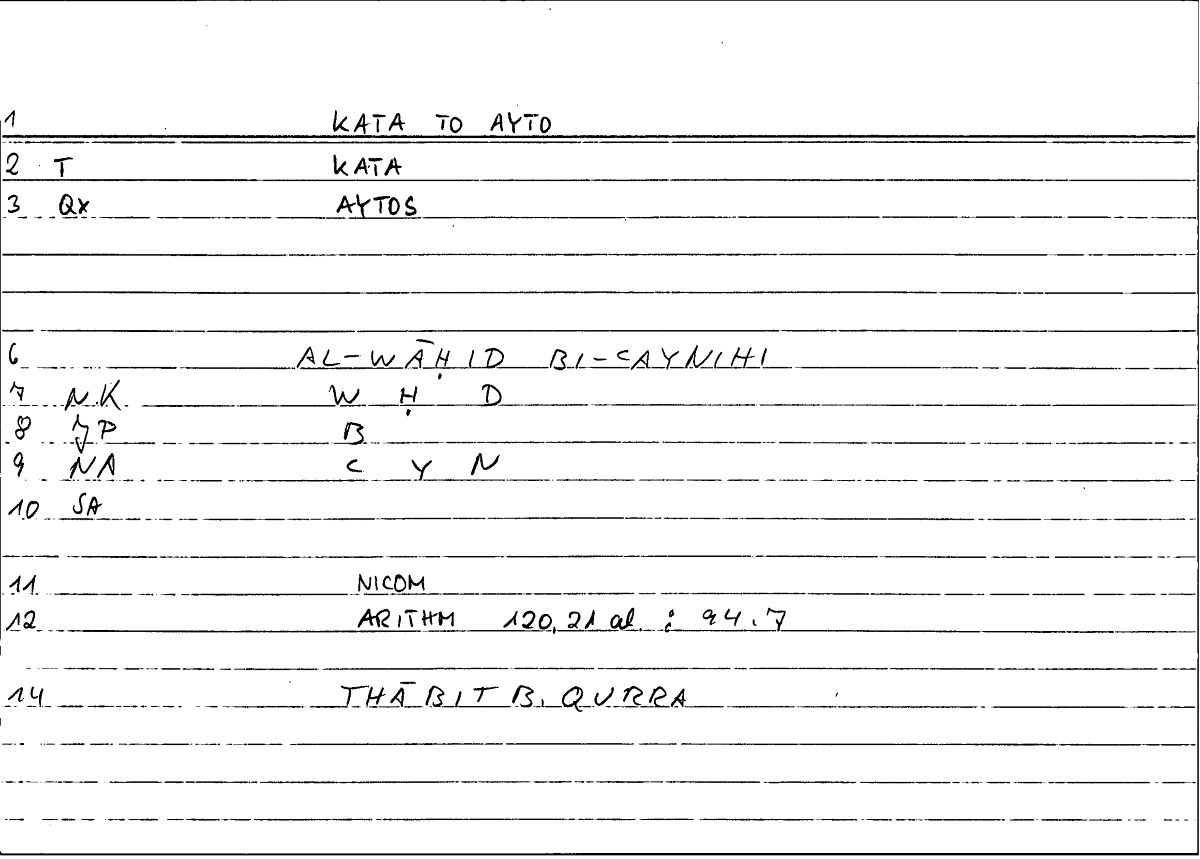 1 KATA TO AYTO
2 T KATA
3 Qx AYTOS
6 AL-WĀḤID BI-CAYNIHI
7 NK W Ḥ D
8 JP B
9 NA C Y N
10 SA
11 NICOM
12 ARITHM 120,21 al. : 94.7
14 THĀBIT B. QURRA